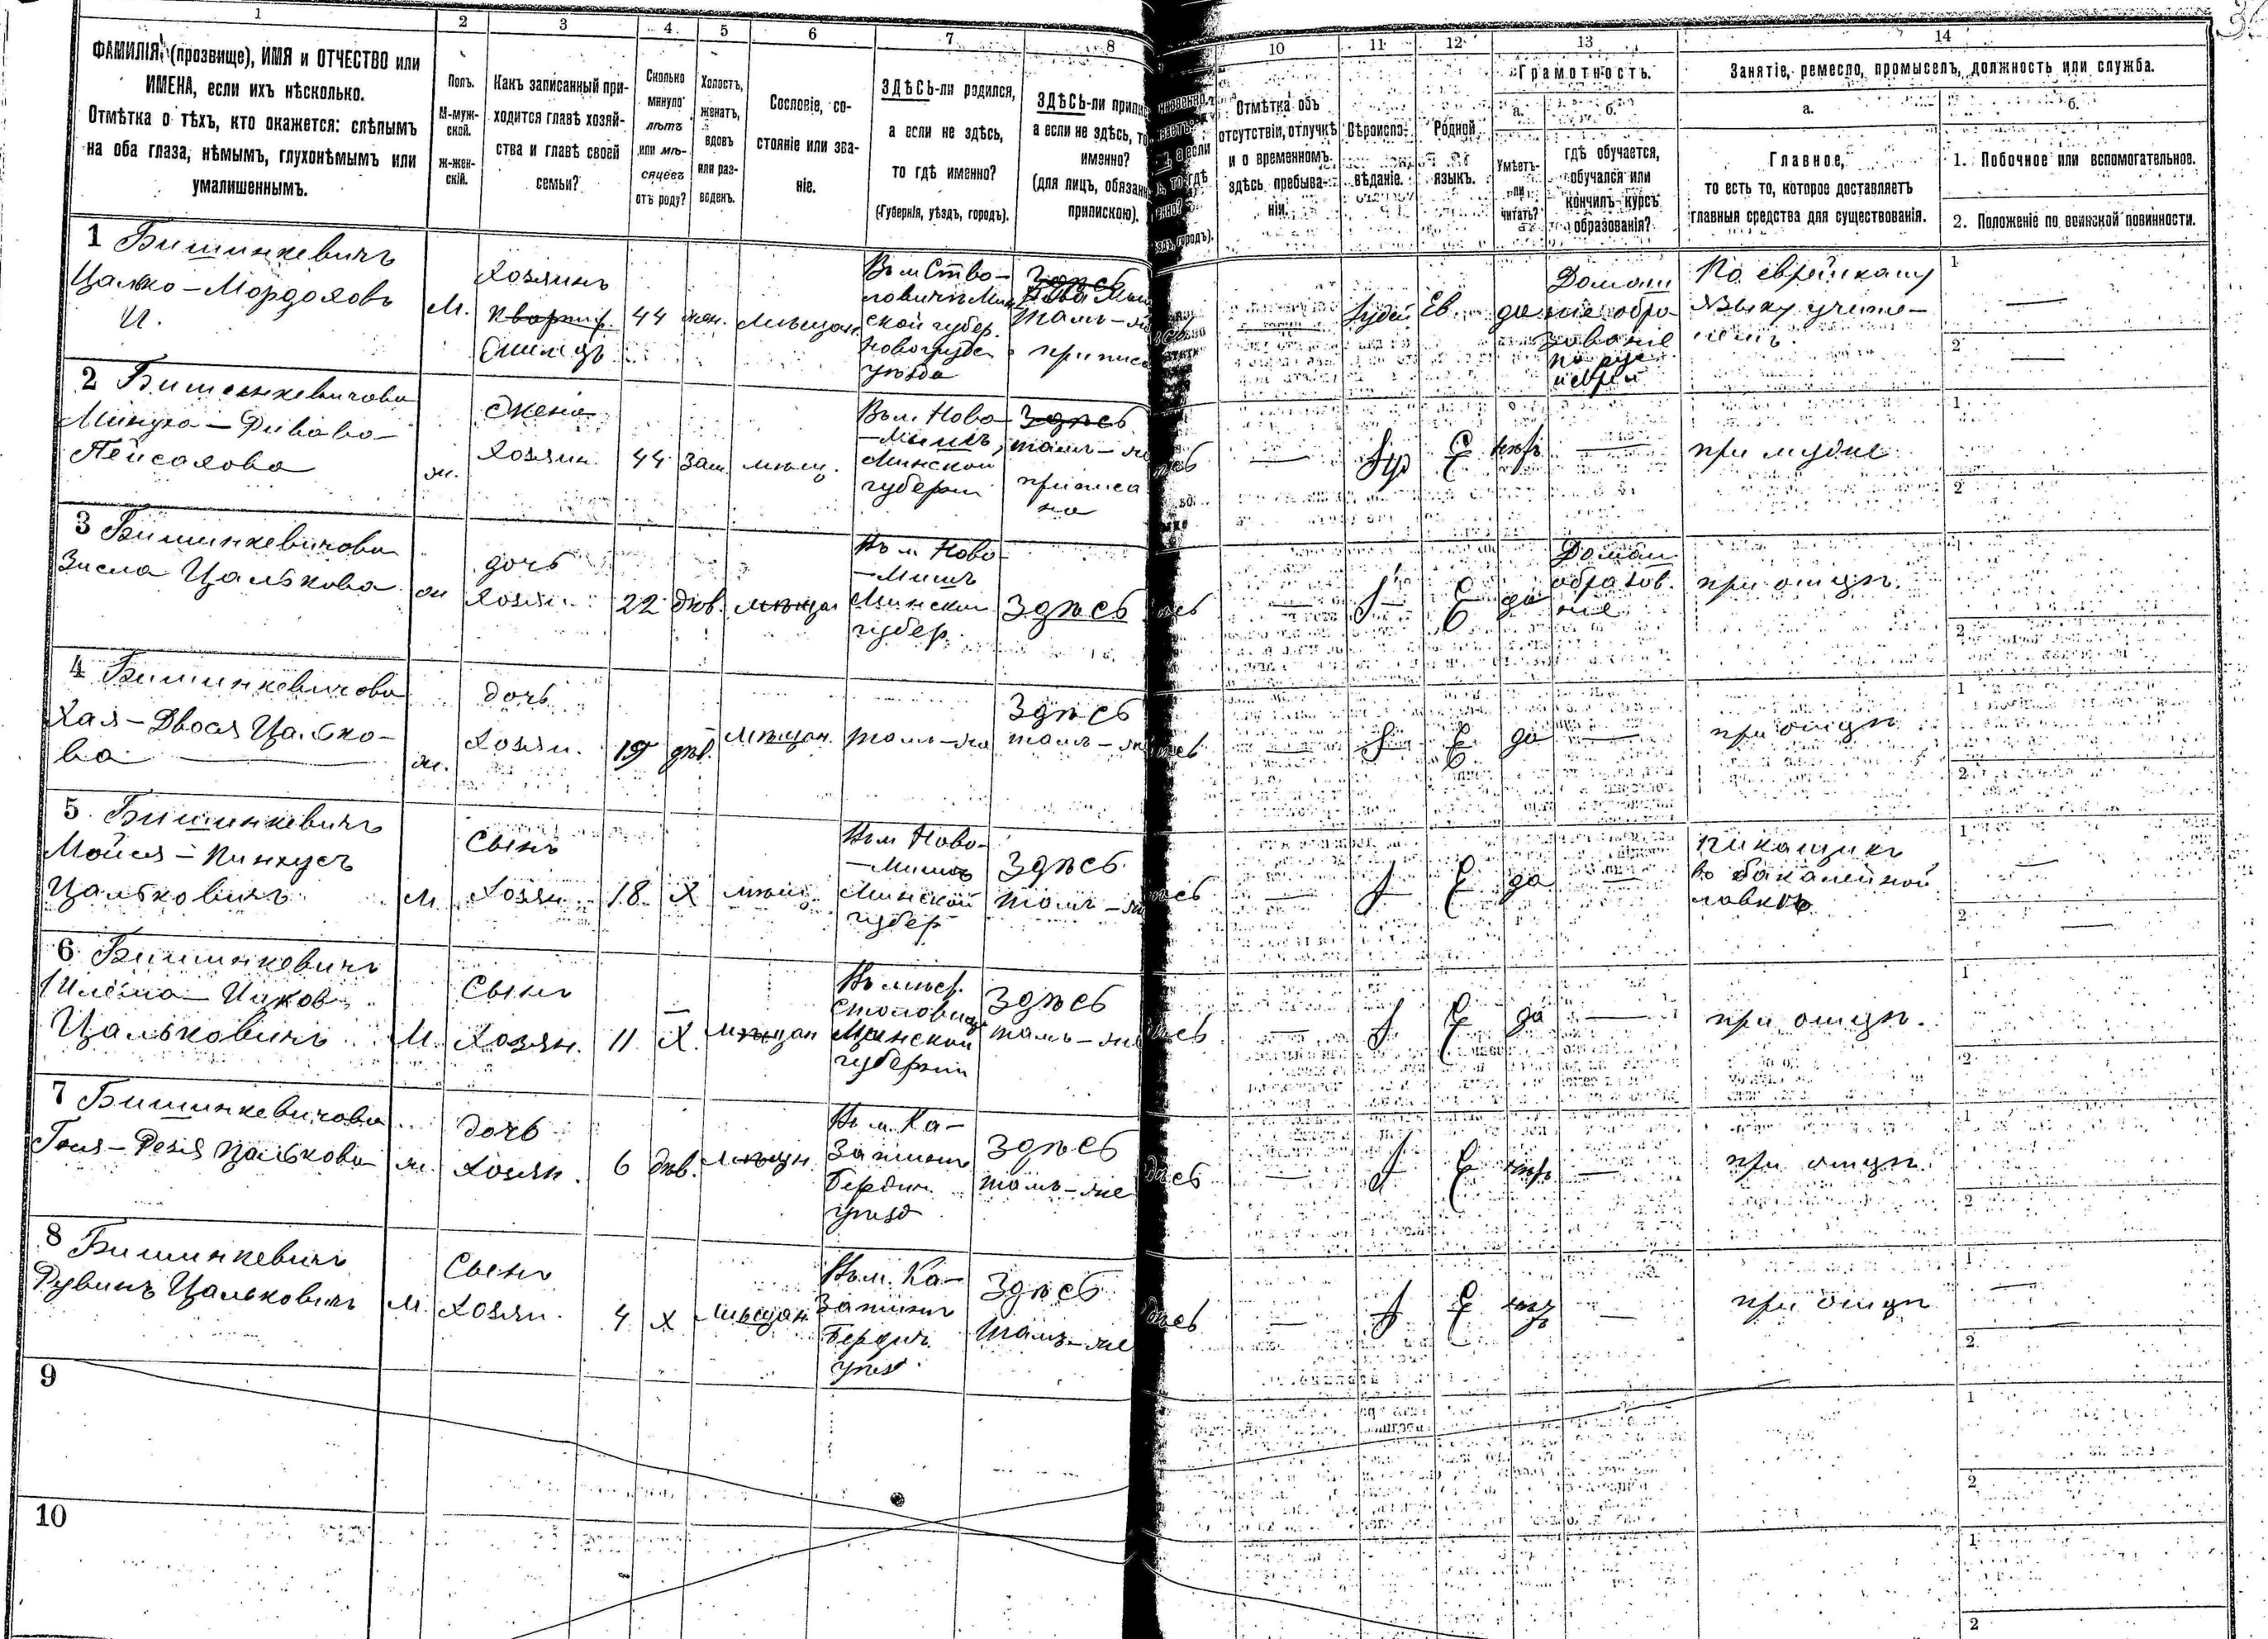 1
2
3
4
5
6
7
8
10
11
12
13
14
ФАМИЛІЯ, (прозвище), ИМЯ и ОТЧЕСТВО или
ИМЕНА, если ихъ нѣсколько.
Отмѣтка о тѣхъ, кто окажется: слѣпымъ
на оба глаза, нѣмымъ, глухонѣмымъ или
умалишеннымъ.
Полъ.
М-муж-
ской.
ж-жен-
скій.
Какъ записанный при-
ходится главѣ хозяй-
ства и главѣ своей
семьи?
Сколько
минуло
лѣтъ
или мѣ-
сяцевъ
отъ роду?
Холостъ,
женатъ,
вдовъ
или раз-
веденъ.
Сословіе, со-
стояніе или зва-
ніе.
ЗДѢСЬ-ли родился,
а если не здѣсь,
то гдѣ именно?
(Губернія, уѣздъ, городъ).
ЗДѢСЬ-ли припи
а если не здѣсь, то
именно?
(для лицъ, обязан
припискою).
Отмѣтка объ
отсутствіи, отлучкѣ
и о временномъ
здѣсь пребыва-
ніи.
Вѣроиспо-
вѣданіе.
Родной
языкъ.
Грамотность.
а.
б.
Умѣетъ-
ли
читать?
гдѣ обучается,
обучался или
кончилъ курсъ
образованія?
Занятіе, ремесло, промыселъ, должность или служба.
а.
б.
Главное,
то есть то, которое доставляетъ
главныя средства для существованія.
1. Побочное или вспомогательное.
2. Положеніе по воинской повинности.
1 Бишинкевичъ
Цалко-Мордоховъ
И.
М.
Хозяинъ
44
жен.
Мѣщан.
ской губер.
уѣзда
Здѣсь
тамъ-же
приписа
Іудей
Ев.
да
Домаш
нее обра-
зованіе
По еврейскому
языку учите-
1
2
2 Бишинкевичова
Пейсахова
ж.
Жена
Хозяин.
44
Зам.
мѣщ.
Въ м Ново-
-Мышъ
Минской
губерн
Здѣсь
тамъ-же
приписа
на
Іуд
Е
нѣтъ
при мужѣ
1
2
3 Бишинкевичова
Зисла Цалькова
ж
дочь
Хозяи.
22
дѣв.
мѣщан
Въ м Ново-
-Мышъ
Минской
губер.
Здѣсь
І
Е
да
Домаш
образов.
ніе
при отцѣ.
1
2
4 Бишинкевичова
Хая-Двося Цалько-
ва
ж.
дочь
Хозяи.
19
дѣв.
Мѣщан.
тамъ-же
Здѣсь
тамъ-же
І
Е
да
при отцѣ
1
2
5 Бишинкевичъ
Мойся-Пинкусъ
Цальковичъ
М.
Сынъ
Хозяи.
18
Х
мѣщ.
Въ м Ново-
-Мышъ
Минской
губер
Здѣсь
тамъ-же
І
Е
да
Пикащикъ
въ бакалейной
лавкѣ
1
2
6 Бишинкевичъ
Цальковичъ
М.
Сынъ
Хозяи.
11
Х.
Мѣщан
Столовичи
Минской
губерни
Здѣсь
тамъ-же
І
Е
да
при отцѣ.
1
2
7 Бишинкевичова
Цалькова
ж.
дочь
Хозяи.
6
дѣв.
Мѣщн.
Въ м. Ка-
затинъ
Бердич.
уѣзд
Здѣсь
тамъ-же
І
Е
нѣтъ
при отцѣ.
1
2
8 Бишинкевичъ
Рувинъ Цальковичъ
М.
Сынъ
Хозяи.
4
Х
Мѣщан.
Въ м. Ка-
затинъ
Бердич.
уѣзд
Здѣсь
тамъ-же
І
Е
нѣтъ
при отцѣ
1
2
9
1
2
10
1
2